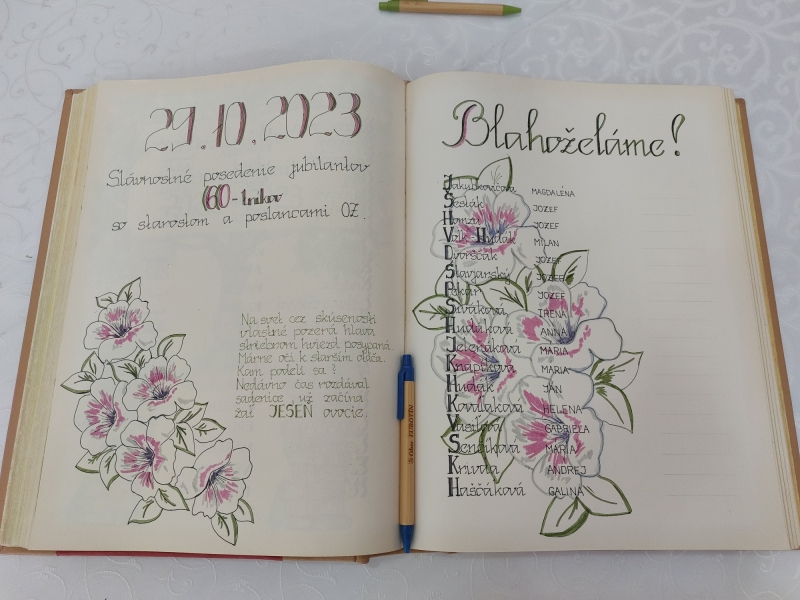 29.10.2023
Slávnostné posedenie jubilantov
60-tnikov
so starostom a poslancami OZ.
Na svet cez skúsenosti
vlastné pozerá hlava
striebrom hviezd posypaná.
Márne oči k starším otáča.
Kam podeli sa?
Nedávno čas rozdával
sadenice, už začína
žať JESEŇ ovocie.
Blahoželáme!
Jakubkovičová MAGDALÉNA
Šesták JOZEF
Honzo JOZEF
Válk Hudák MILAN
Dvorščák JOZEF
Slavjarský JOZEF
Pekár JOZEF
Siváková IRENA
Hudáková ANNA
Jeleňáková MÁRIA
Knapíková MÁRIA
Hudák JÁN
Kavuľáková HELENA
GABRIELA
Senčáková MÁRIA
Krivda ANDREJ
Haščáková GALINA